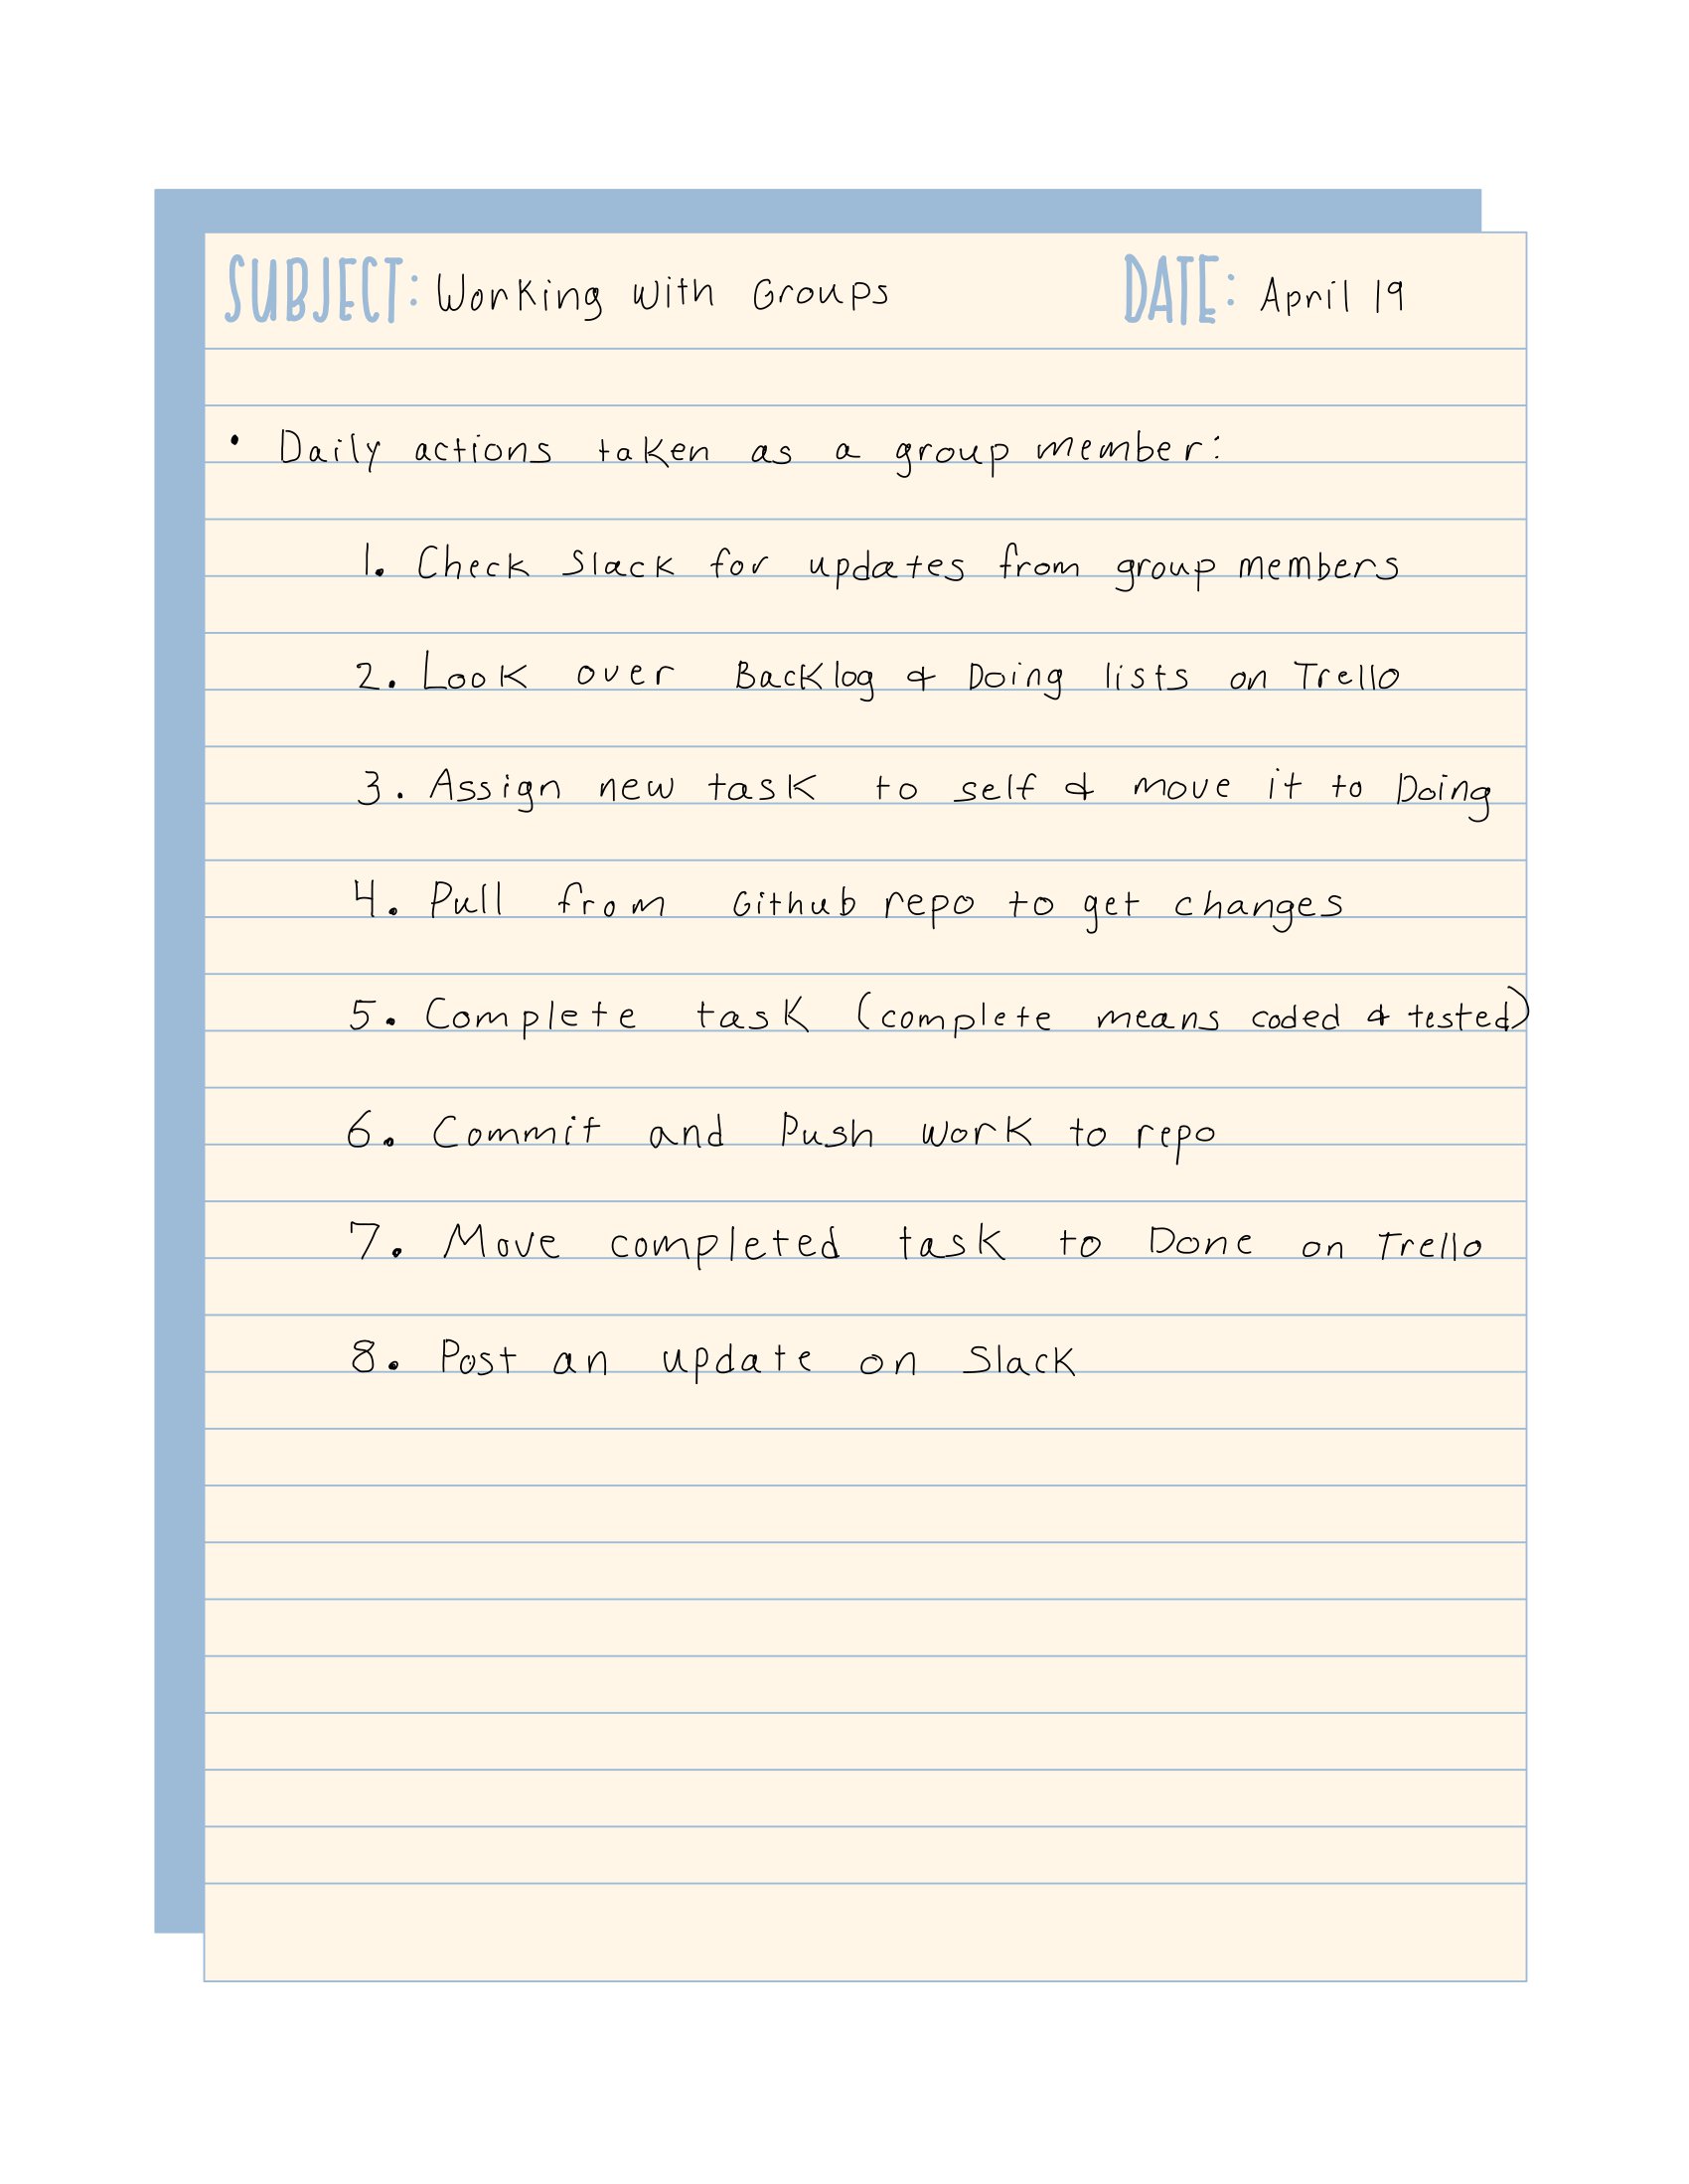 SUBJECT: Working with Groups DATE: April 19
• Daily actions taken as a group member:
1. Check Slack for updates from group members
2. Look over Backlog & Doing lists on Trello
3. Assign new task to self & move it to Doing
4. Pull from Github repo to get changes
5. Complete task (complete means coded & tested)
6. Commit and Push work to repo
7. Move completed task to Done on Trello
8. Post an update on Slack